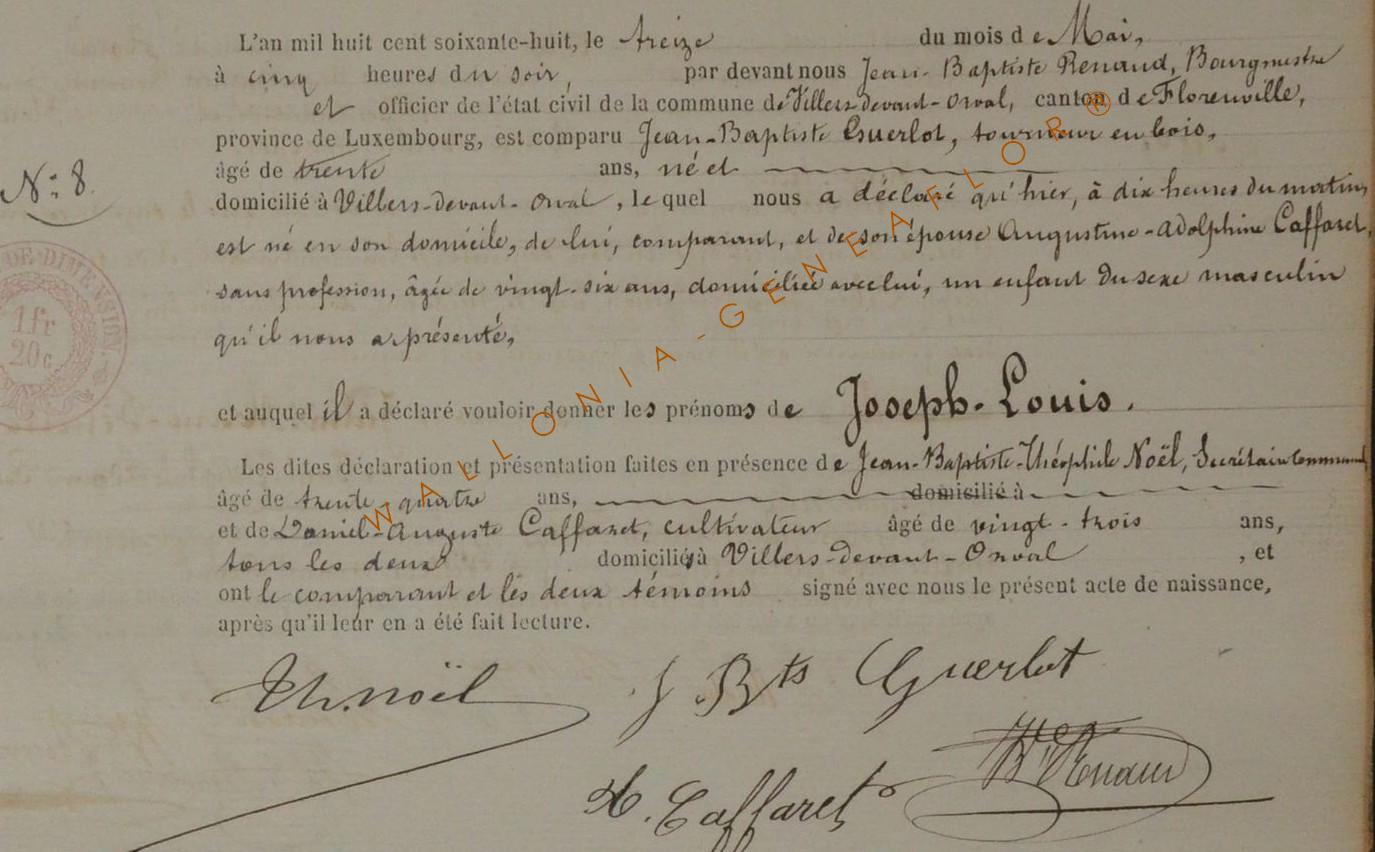 L'an mil huit cent soixante-huit, le treize du mois de Mai,
à cinq heures du soir, par devant nous Jean-Baptiste Renaud, Bourgmestre
et officier de l'état civil de la commune de Villers-devant-Orval, canton de Florenville,
province de Luxembourg, est comparu Jean-Baptiste Guerlot, tourneur en bois,
âgé de trente ans, né et
N° 8.
domicilié à Villers-devant-Orval, lequel nous a déclaré qu'hier, à dix heures du matin,
est né en son domicile, de lui, comparant, et de son épouse Augustine-Adolphine Caffaret,
sans profession, âgée de vingt-six ans, domiciliée avec lui, un enfant du sexe masculin
DE DIMENSION.
1 fr
20 c
qu'il nous a présenté,
et auquel il a déclaré vouloir donner les prénoms de Joseph-Louis.
Les dites déclaration et présentation faites en présence de Jean-Baptiste-Théophile Noël, Secrétaire Communal,
âgé de trente-quatre ans, domicilié à
et de Daniel-Auguste Caffaret, cultivateur âgé de vingt-trois ans,
tous les deux domiciliés à Villers-devant-Orval, et
ont le comparant et les deux témoins signé avec nous le présent acte de naissance,
après qu'il leur en a été fait lecture.
Th. Noël J Bts Guerlot
Bte Renaud
A. Caffaret
WALLONIA-GENEAFLOR®